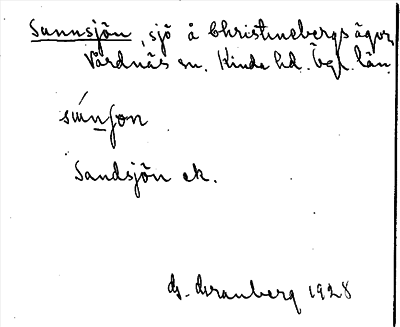 Sunnsjön, sjö å Christinebergs ägor,
Vårdnäs sn. Kinda hd. Ögl. län.
Sandsjön ek.
G. Granberg 1928